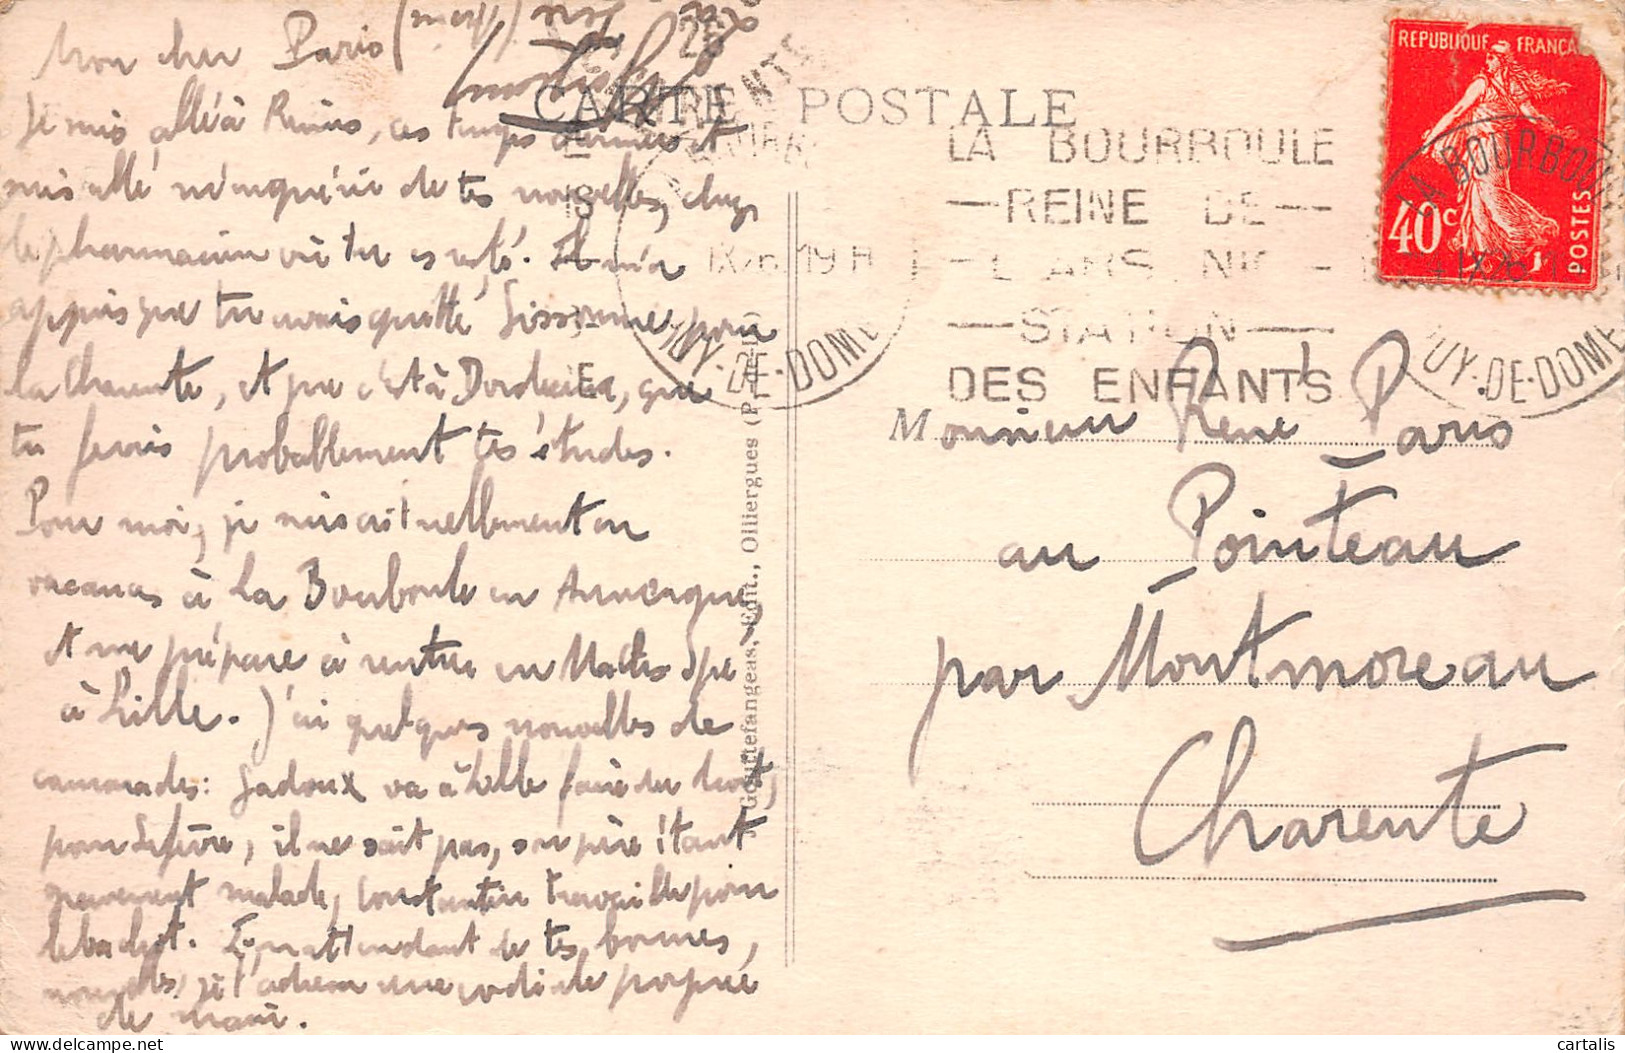 Mon cher Paris
Je suis allé à Reims, ces temps derniers et
suis allé m'enquérir de tes nouvelles, chez
le pharmacien où tu es resté. Il m'a
appris que tu avais quitté Sissonne, pour
la Charente, et que c'est à Bordeaux, que
tu ferais probablement tes études.
Pour moi, je suis actuellement en
vacances à La Bourboule en Auvergne,
et me prépare à rentrer en Maths Spé
à Lille. J'ai quelques nouvelles de
camarades: Gadoux va à Lille faire du droit,
pour Lefèvre, il ne sait pas, son père étant
gravement malade, Constantin travaille pour
le bachot. En attendant de tes bonnes,
nouvelles, je t'adresse une cordiale poignée
de main.
CARTE POSTALE
Gouttefangeas, Edit., Olliergues (P.-de-D.)
LA BOURBOULE
REINE DE
L'ARSENIC
STATION
DES ENFANTS
PUY-DE-DOME
REPUBLIQUE FRANÇAISE
40c
POSTES
LA BOURBOULE
PUY-DE-DOME
Monsieur René Paris
au Pointeau
par Montmoreau
Charente
cartalis